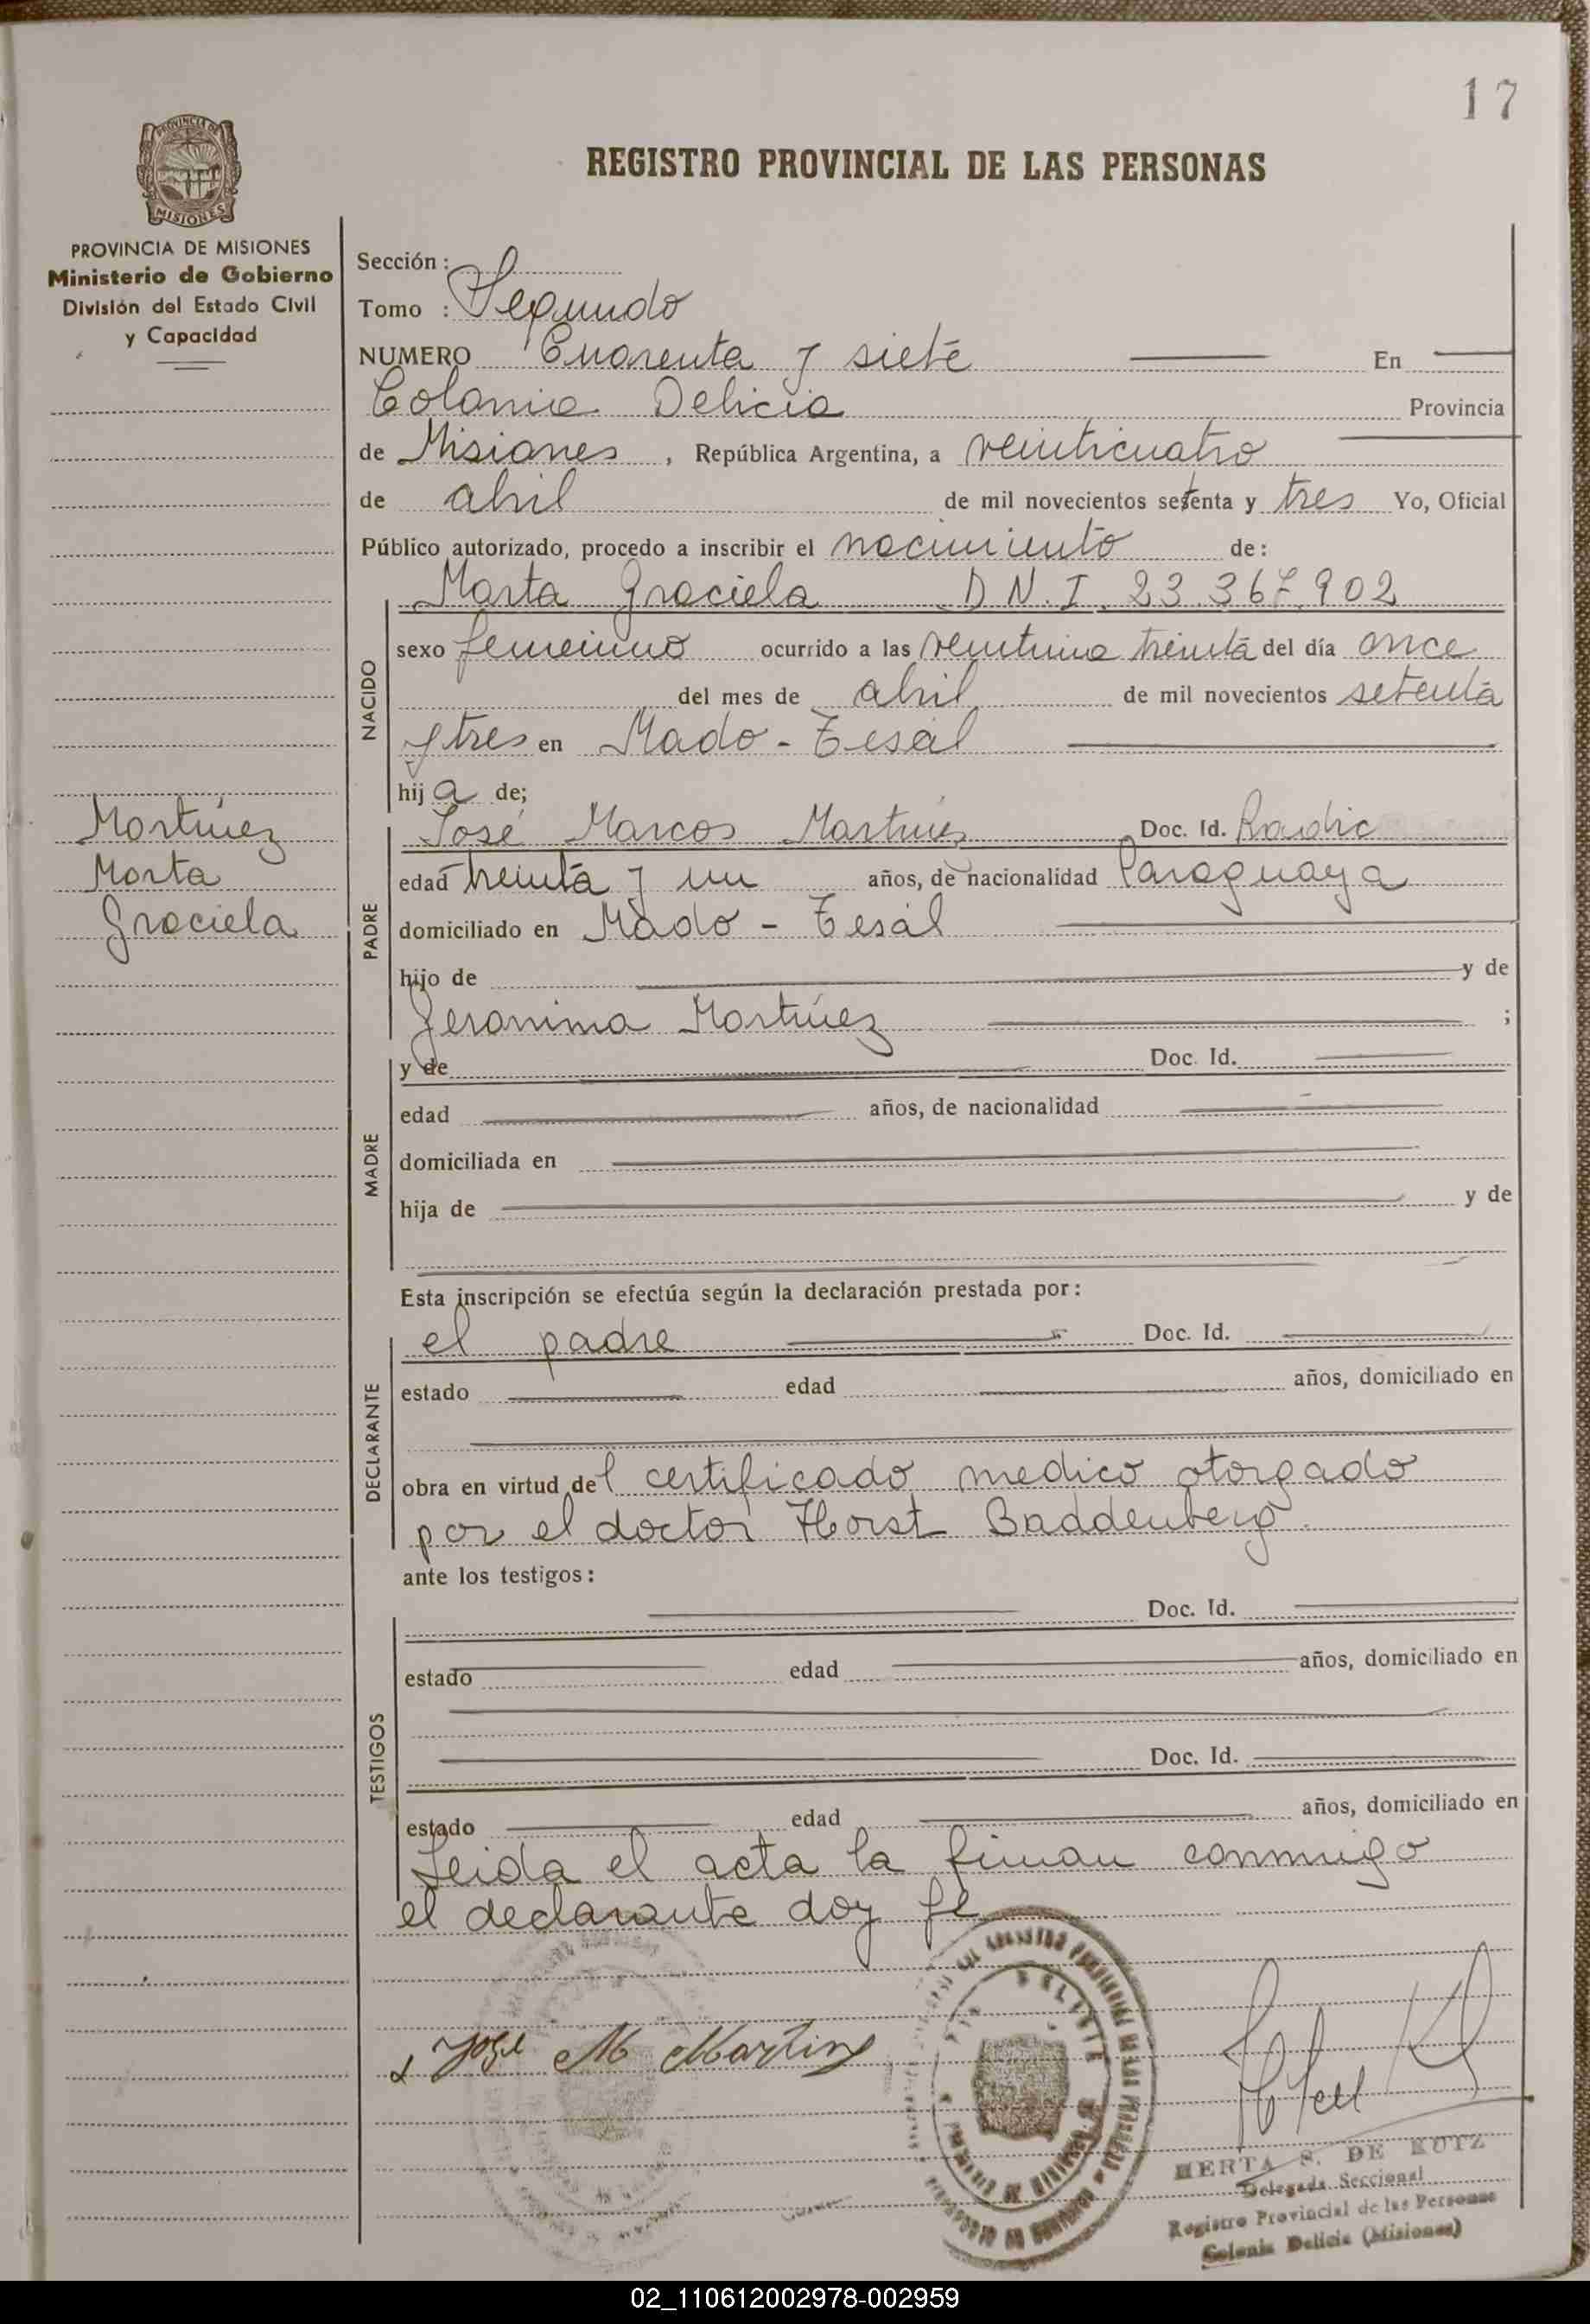 17
PROVINCIA DE
MISIONES
REGISTRO PROVINCIAL DE LAS PERSONAS
PROVINCIA DE MISIONES
Ministerio de Gobierno
División del Estado Civil
y Capacidad
Sección :
Tomo : Segundo
NUMERO Cuarenta y siete En
Colonia Delicia Provincia
de Misiones , República Argentina, a veinticuatro
de abril de mil novecientos setenta y tres Yo, Oficial
Público autorizado, procedo a inscribir el nacimiento de:
Marta Graciela D N. I. 23.367.902
NACIDO
sexo femenino ocurrido a las veintiuna treinta del día once
del mes de abril de mil novecientos setenta
y tres en Mado - Tesal
hij a de;
Martínez
Marta
Graciela
PADRE
José Marcos Martínez Doc. Id. Radic
edad treinta y un años, de nacionalidad Paraguaya
domiciliado en Mado - Tesal
hijo de y de
Jeronima Martínez ;
MADRE
y de Doc. Id.
edad años, de nacionalidad
domiciliada en
hija de y de
Esta inscripción se efectúa según la declaración prestada por:
DECLARANTE
el padre Doc. Id.
estado edad años, domiciliado en
obra en virtud del certificado medico otorgado
por el doctor Horst Baddenberg.
ante los testigos:
TESTIGOS
Doc. Id.
estado edad años, domiciliado en
Doc. Id.
estado edad años, domiciliado en
Leida el acta la firman conmigo
el declarante doy fe
José M Martinz
HERTA S. DE KUTZ
Delegada Seccional
Registro Provincial de las Personas
Colonia Delicia (Misiones)
02_110612002978-002959